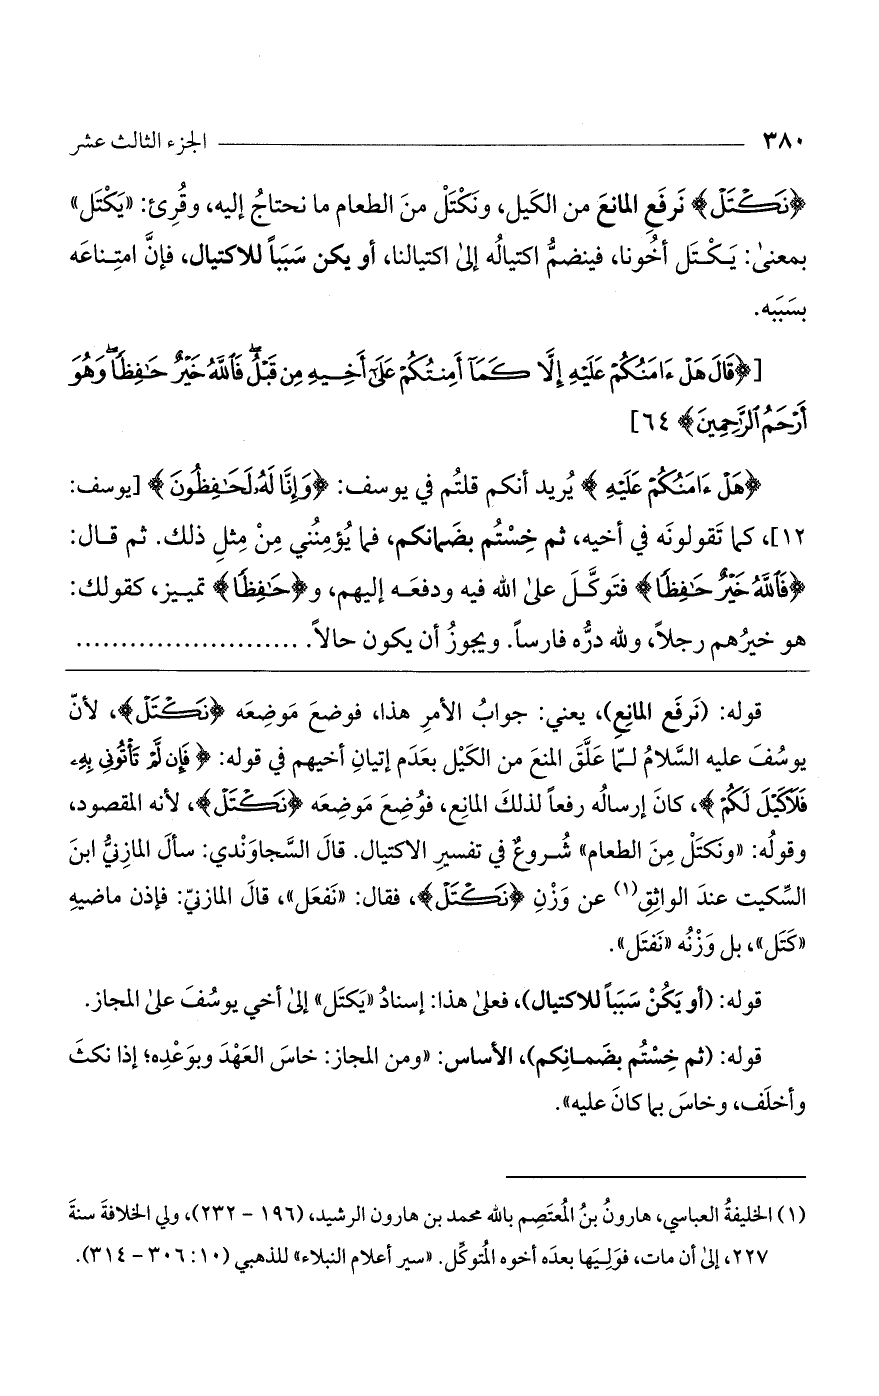 ٣٨٠ ــــــــــــــــــــ الجزء الثالث عشر
﴿نَكْتَلْ﴾ نَرفَعِ المانعَ من الكَيل، ونَكْتَلْ منَ الطعام ما نحتاجُ إليه، وقُرِئ: «يَكْتَل»
بمعنىٰ: يَكْتَل أخُونا، فينضمُّ اكتيالُه إلىٰ اكتيالنا، أو يكن سَبَباً للاكتيال، فإنَّ امتِناعَه
بسَبَبه.
[﴿قَالَ هَلْ ءَامَنُكُمْ عَلَيْهِ إِلَّا كَمَآ أَمِنتُكُمْ عَلَىٰٓ أَخِيهِ مِن قَبْلُۖ فَٱللَّهُ خَيْرٌ حَٰفِظًاۖ وَهُوَ
أَرْحَمُ ٱلرَّٰحِمِينَ﴾ ٦٤]
﴿هَلْ ءَامَنُكُمْ عَلَيْهِ﴾ يُريد أنكم قلتُم في يوسف: ﴿وَإِنَّا لَهُۥ لَحَٰفِظُونَ﴾ [يوسف:
١٢]، كما تَقولونَه في أخيه، ثم خِسْتُم بضَمانكم، فما يُؤمِنُني مِنْ مِثلِ ذلك. ثم قال:
﴿فَٱللَّهُ خَيْرٌ حَٰفِظًا﴾ فتَوكَّلَ علىٰ الله فيه ودفعَه إليهم، و﴿حَٰفِظًا﴾ تمييز، كقولك:
هو خيرُهم رجلاً، ولله درُّه فارساً. ويجوزُ أن يكون حالاً. ........................
قوله: (نَرفَع المانِعِ)، يعني: جوابُ الأمرِ هذا، فوضعَ مَوضِعَه ﴿نَكْتَلْ﴾، لأنّ
يوسُفَ عليه السَّلامُ لـمّا عَلَّقَ المنعَ من الكَيْل بعَدَم إتيان أخيهم في قوله: ﴿فَإِن لَّمْ تَأْتُونِى بِهِۦ
فَلَا كَيْلَ لَكُمْ﴾، كانَ إرسالُه رفعاً لذلكَ المانِع، فوُضِعَ مَوضِعَه ﴿نَكْتَلْ﴾، لأنه المقصود،
وقولُه: «ونَكتَلْ مِنَ الطعام» شُروعٌ في تفسيرِ الاكتيال. قالَ السَّجاوَندي: سألَ المازِنيُّ ابنَ
السِّكيت عندَ الواثِقِ(١) عن وَزْنِ ﴿نَكْتَلْ﴾، فقال: «نَفعَل»، قالَ المازنيّ: فإذن ماضيهِ
«كَتَل»، بل وَزْنُه «نَفتَل».
قوله: (أو يَكُنْ سَبَباً للاكتيال)، فعلىٰ هذا: إسنادُ «يَكتَل» إلىٰ أخي يوسُفَ علىٰ المجاز.
قوله: (ثم خِسْتُم بضَمانِكم)، الأساس: «ومن المجاز: خاسَ العَهْدَ وبوَعْدِه؛ إذا نكثَ
وأخلَف، وخاسَ بما كانَ عليه».
(١) الخليفةُ العباسي، هارونُ بنُ المُعتَصِم بالله محمد بن هارون الرشيد، (١٩٦ - ٢٣٢)، ولي الخلافةَ سنةَ
٢٢٧، إلىٰ أن مات، فوَلِيَها بعدَه أخوه المُتوكِّل. «سير أعلام النبلاء» للذهبي (١٠: ٣٠٦ - ٣١٤).